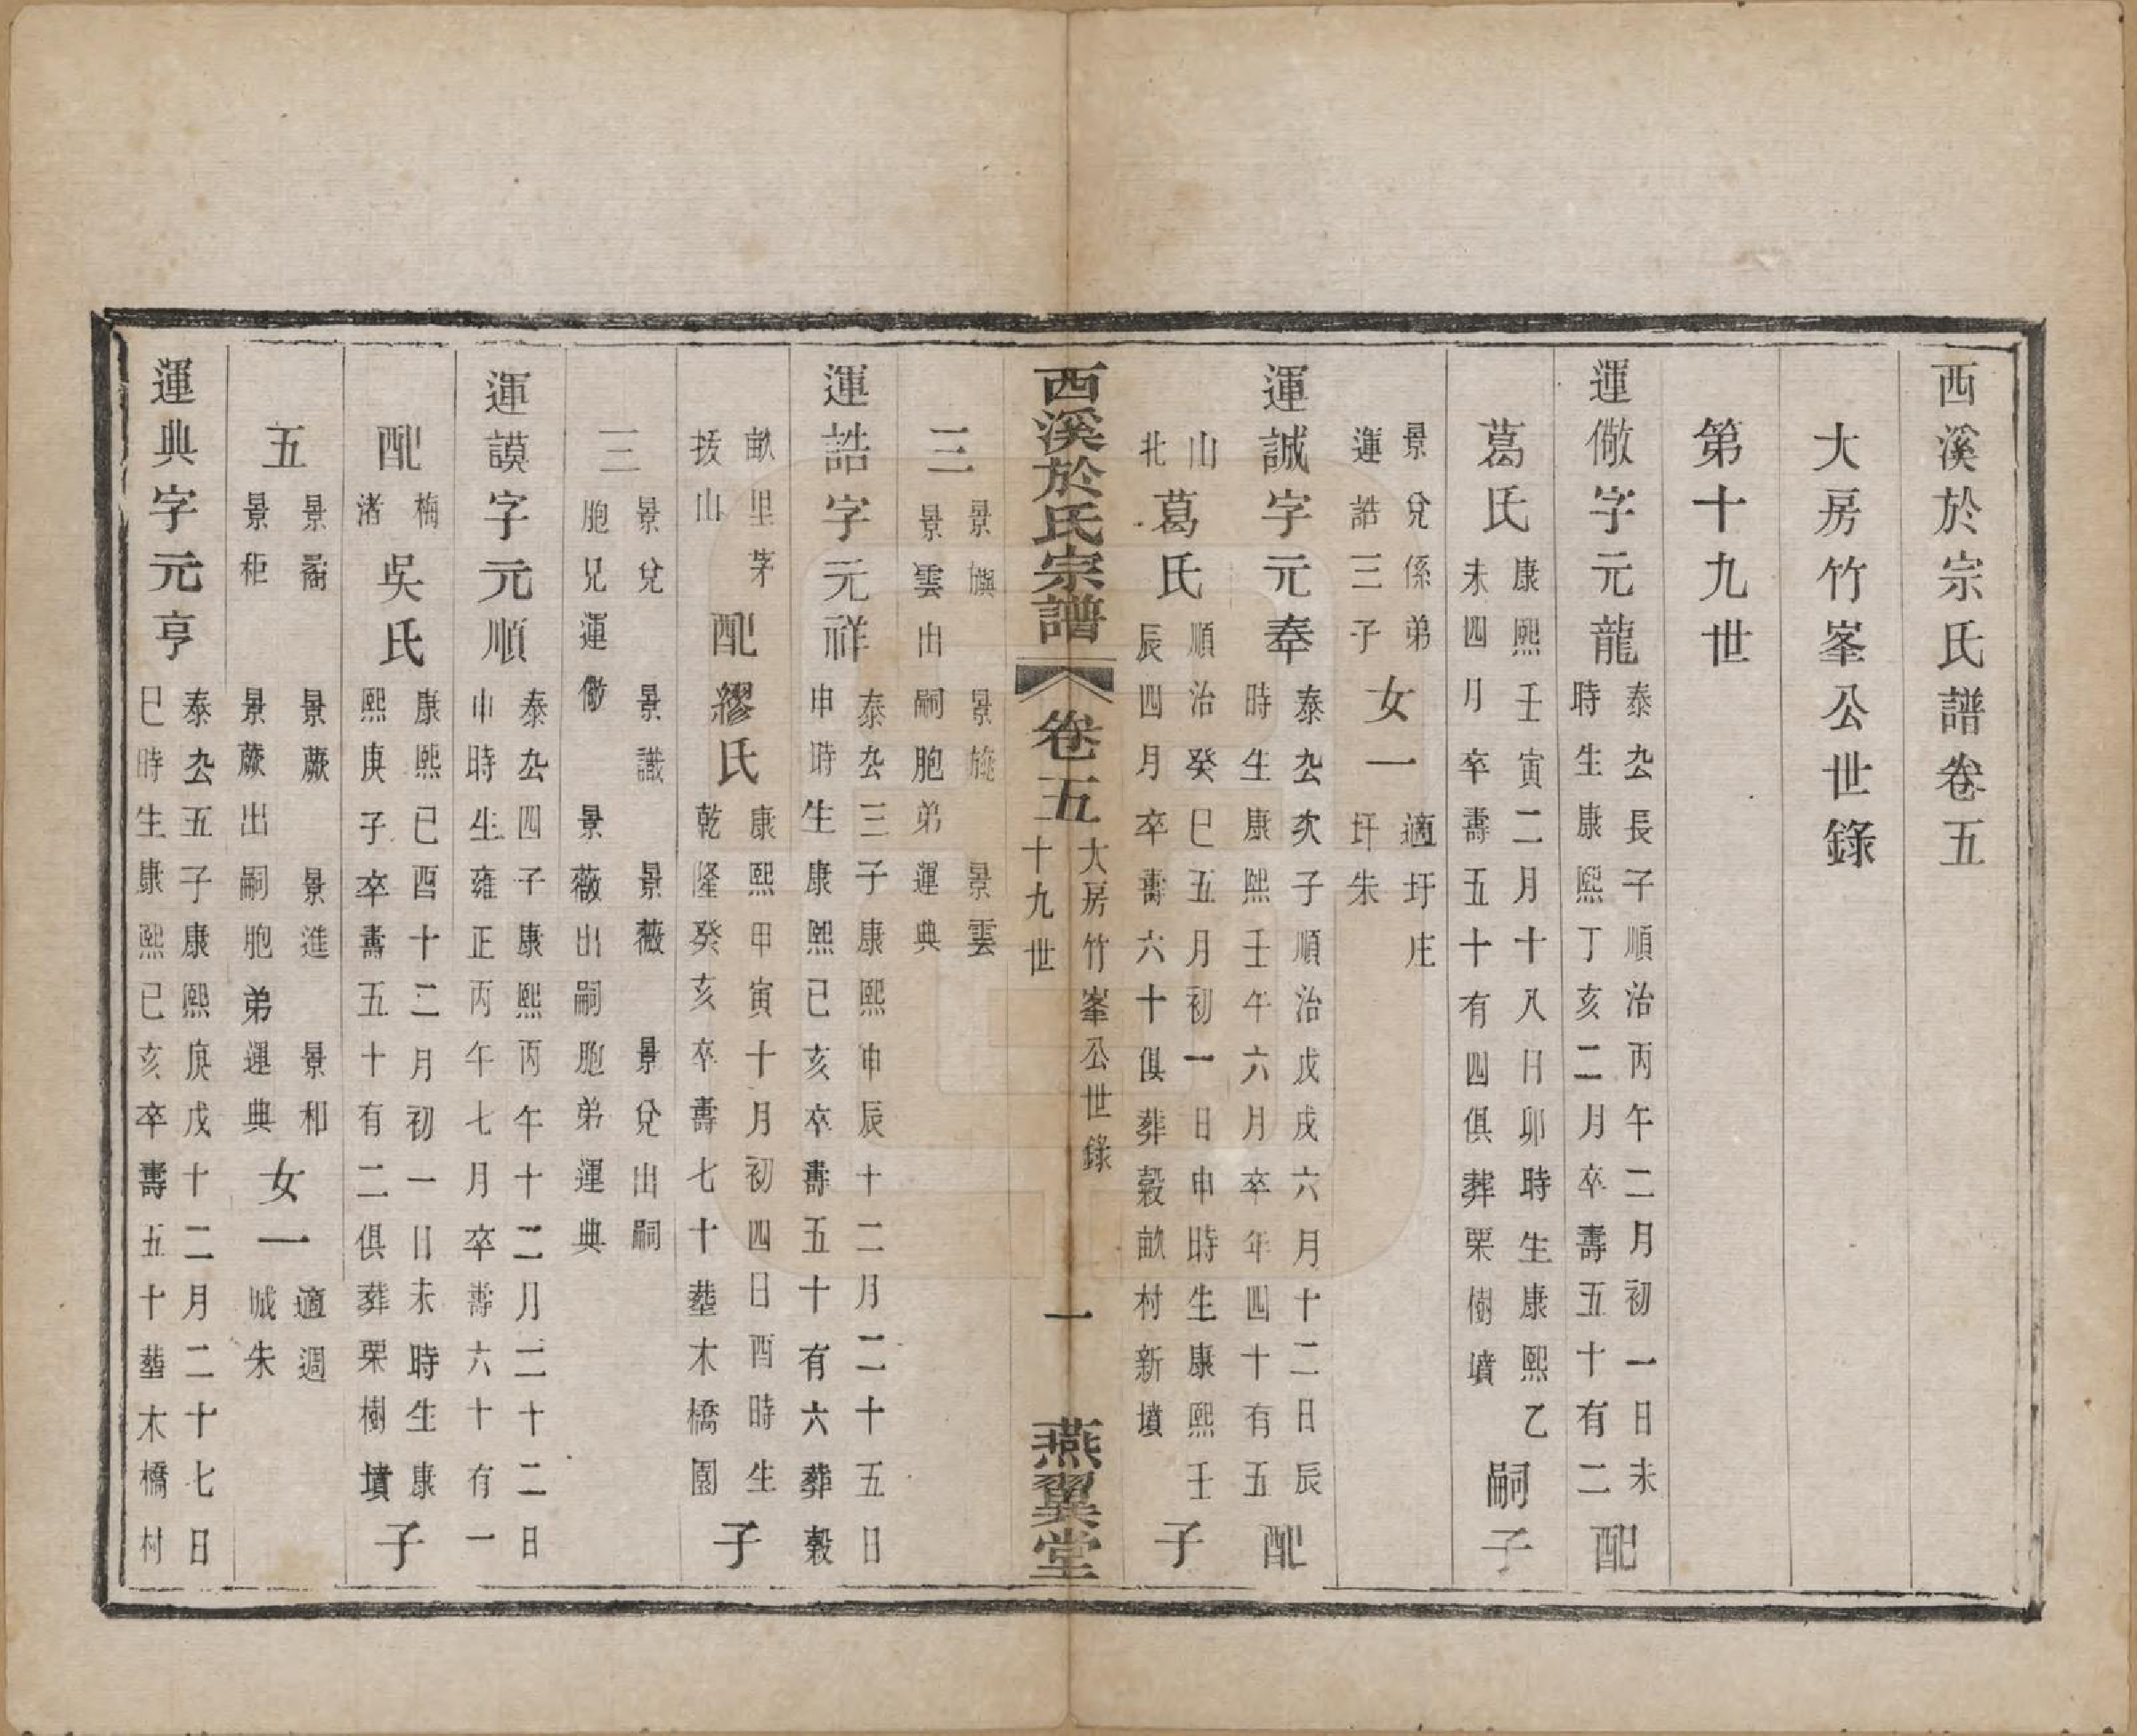 西溪於宗氏譜卷五
大房竹峯公世錄
第十九世
運儆字元龍
泰公長子順治丙午二月初一日未
時生康熙丁亥二月卒壽五十有二
配
葛氏
康熙壬寅二月十八日卯時生康熙乙
未四月卒壽五十有四俱葬栗樹墳
嗣子
景兌係弟
運誥三子
女一
適圩庄
圩朱
運誠字元奉
泰公次子順治戊戌六月十二日辰
時生康熙壬午六月卒年四十有五
配
山
北
葛氏
順治癸巳五月初一日申時生康熙壬
辰四月卒壽六十俱葬穀畝村新墳
子
西溪於氏宗譜
卷五
大房竹峯公世錄
十九世
一
燕翼堂
三
景旟 景旄 景雲
景雲出嗣胞弟運典
運誥字元祥
泰公三子康熙甲辰十二月二十五日
申時生康熙己亥卒壽五十有六葬穀
畝里茅
拔山
配繆氏
康熙甲寅十月初四日酉時生
乾隆癸亥卒壽七十塟木橋園
子
三
景兌 景識 景薇 景兌出嗣
胞兄運儆 景薇出嗣胞弟運典
運謨字元順
泰公四子康熙丙午十二月二十二日
申時生雍正丙午七月卒壽六十有一
配
梅
渚
吳氏
康熙己酉十二月初一日未時生康
熙庚子卒壽五十有二俱葬栗樹墳
子
五
景裔 景蕨 景進 景和
景秬 景蕨出嗣胞弟運典
女一
適週
城朱
運典字元亨
泰公五子康熙庚戌十二月二十七日
巳時生康熙己亥卒壽五十塟木橋村